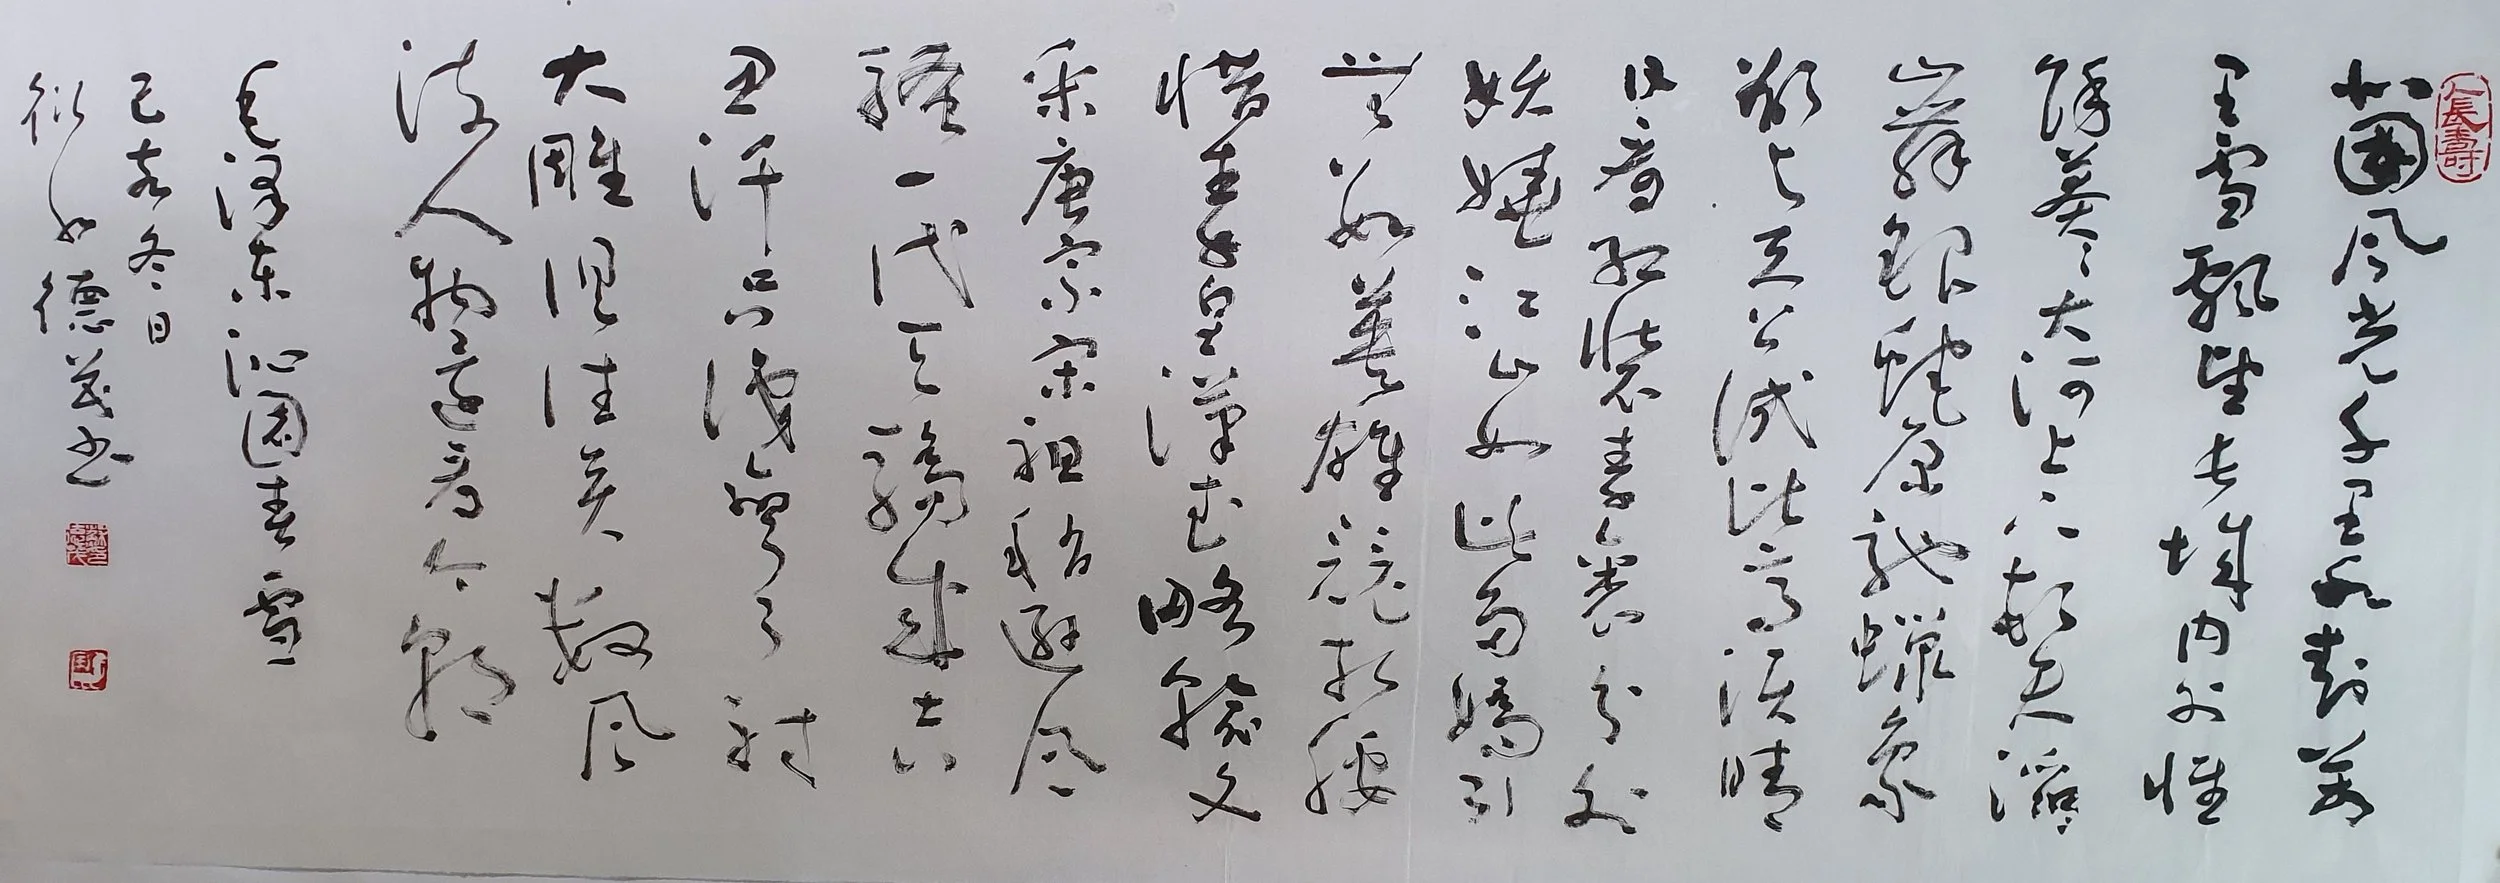 人長壽
北國風光千里冰封萬
里雪飄望長城内外惟
餘莽〻大河上下頓失滔〻
山舞銀蛇原馳蠟象
欲与天公試比高須晴
日看紅裝素裹分外
妖嬈江山如此多嬌引
無數英雄競折腰
惜秦皇漢武略輸文
采唐宗宋祖稍遜風
騷一代天驕成吉
思汗只識彎弓射
大雕俱往矣數風
流人物還看今朝
毛澤東沁園春雪
己亥冬日
德茂书